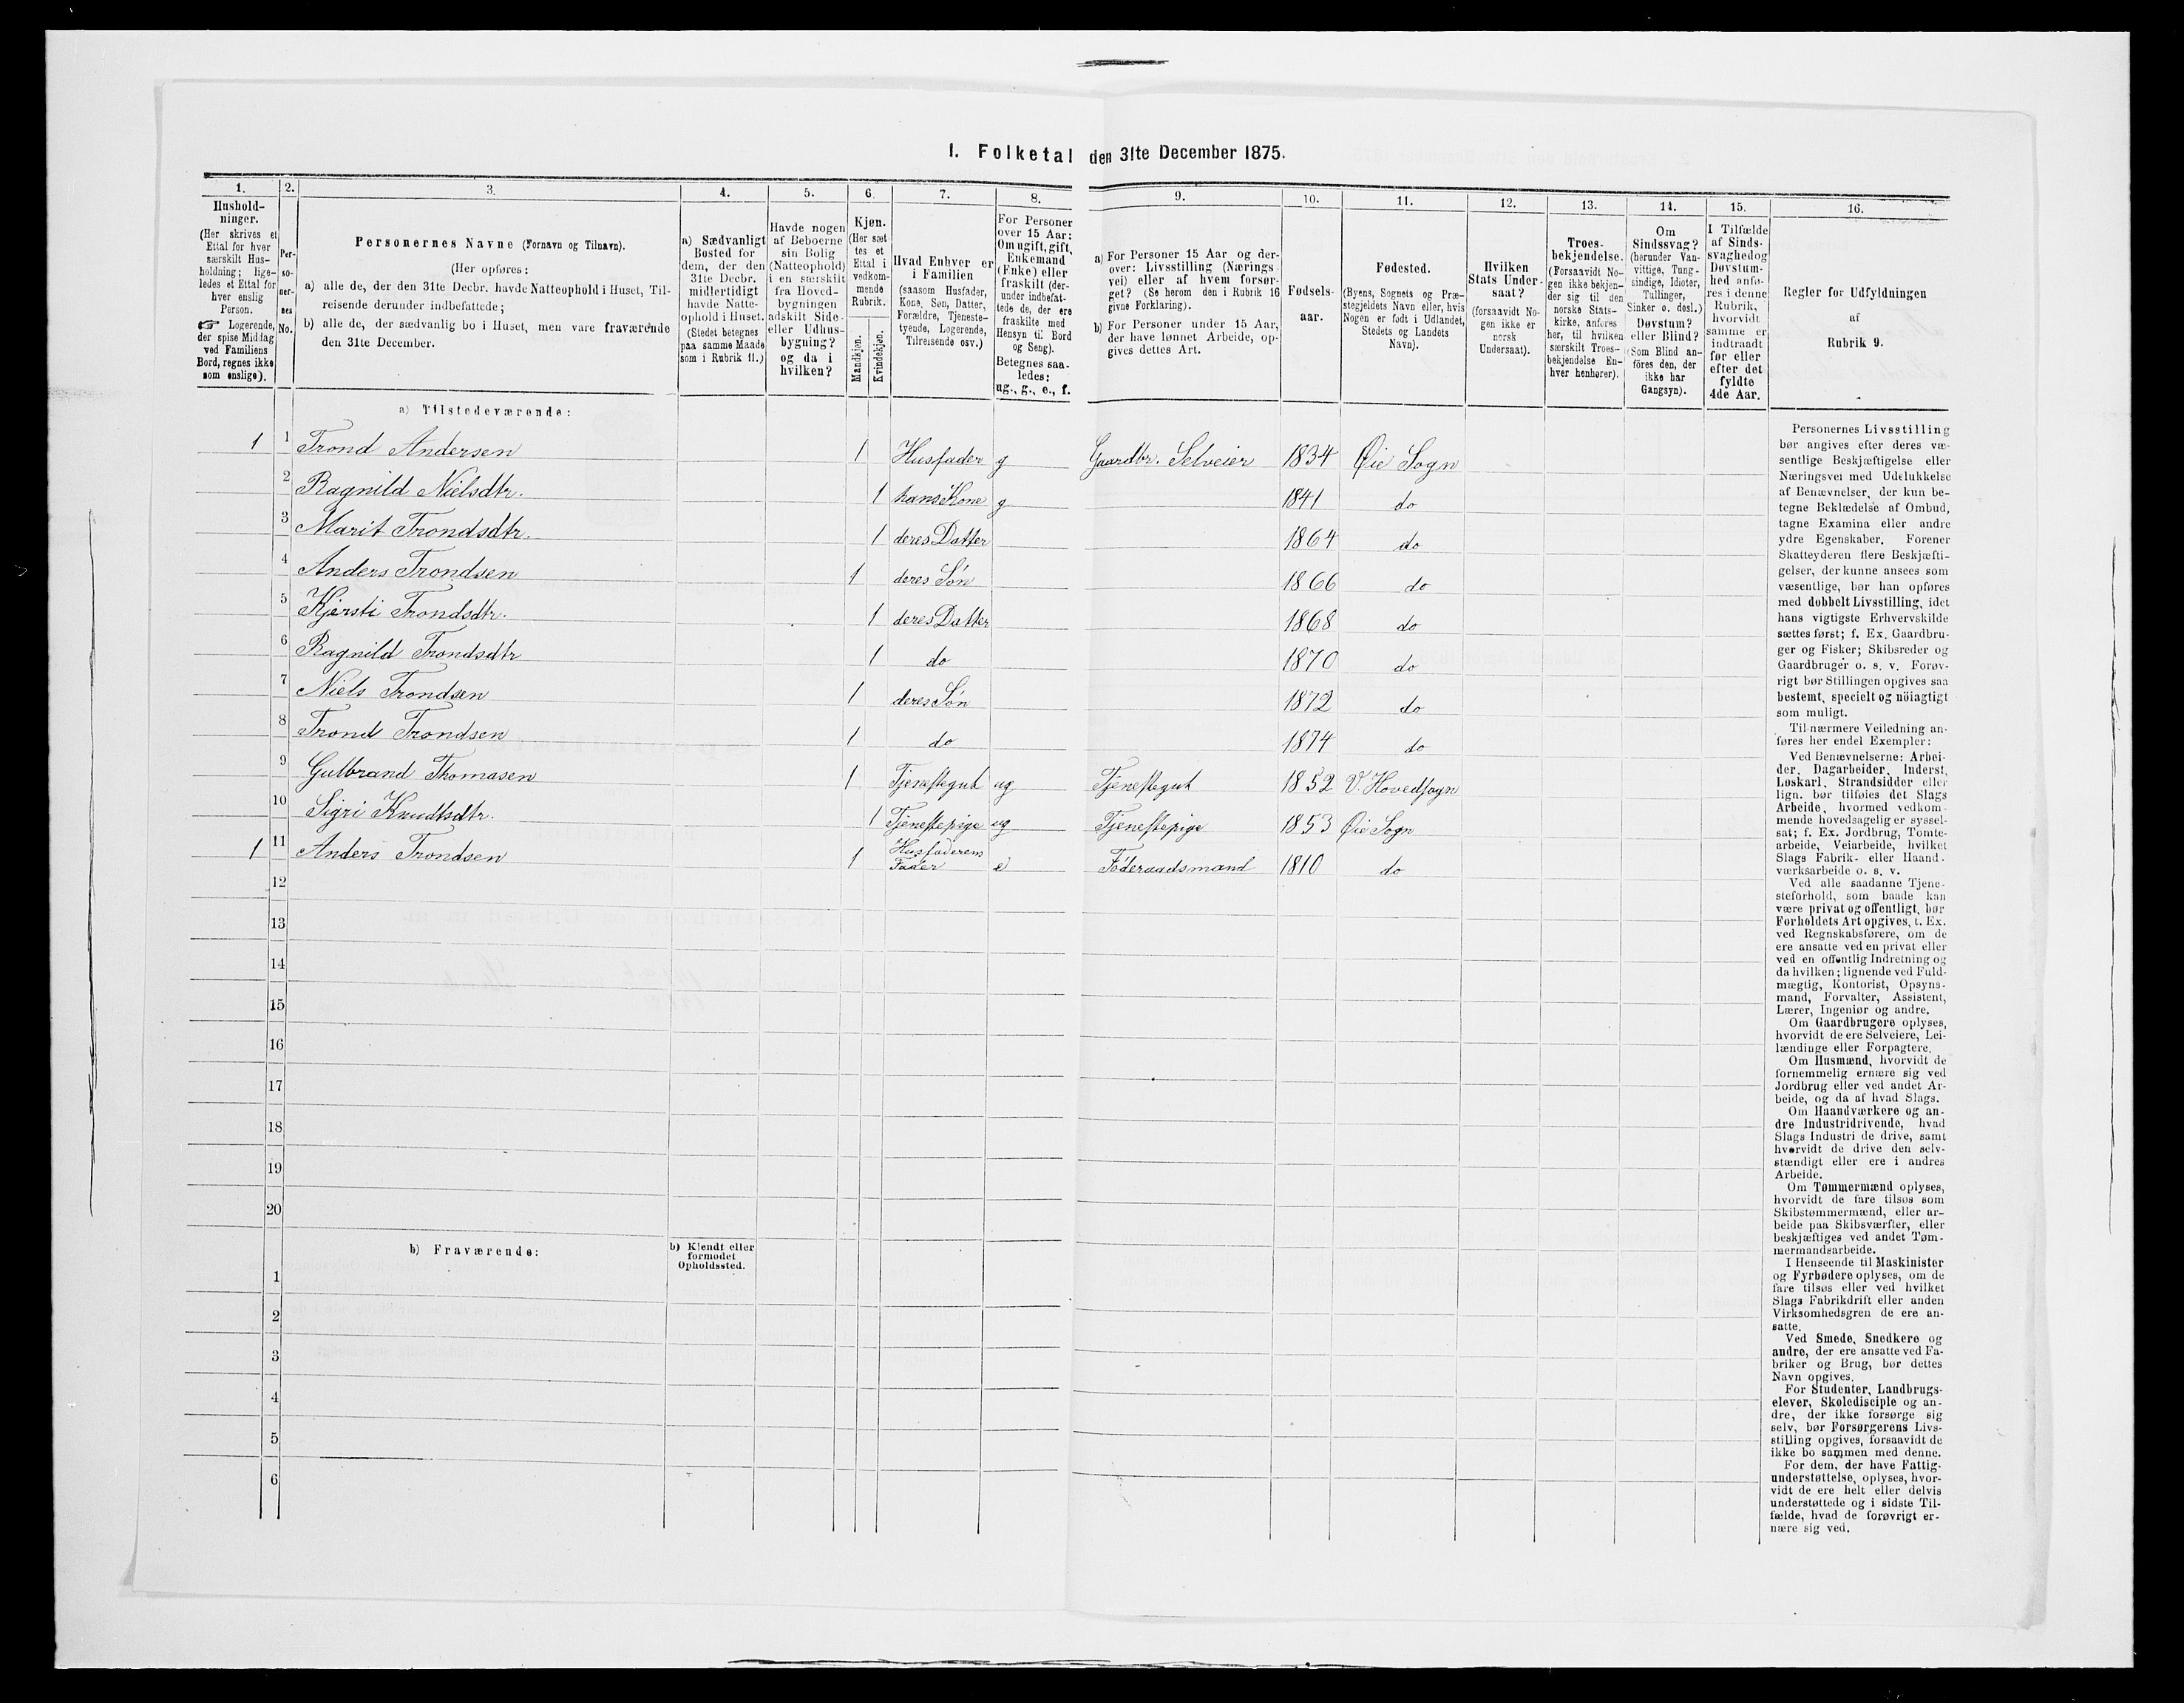 I. Folketal den 31te December 1875.
1.
2.
3.
4.
5.
6.
7.
8.
9.
10.
11.
12.
13.
14.
15.
16.
Hushold-
ninger.
(Her skrives et
Ettal for hver
særskilt Hus-
holdning; lige-
ledes et Ettal for
hver enslig
Person.
☞ Logerende,
der spise Middag
ved Familiens
Bord, regnes ikke
som enslige).
Per-
so-
ner-
nes
No.
Personernes Navne (Fornavn og Tilnavn).
(Her opføres:
a) alle de, der den 31te Decbr. havde Natteophold i Huset, Til-
reisende derunder indbefattede;
b) alle de, der sædvanlig bo i Huset, men vare fraværende
den 31te December.
a) Sædvanligt
Bosted for
dem, der den
31te Decbr.
midlertidigt
havde Natte-
ophold i Huset.
(Stedet betegnes
paa samme Maade
som i Rubrik 11.)
Havde nogen
af Beboerne
sin Bolig
(Natteophold)
i en særskilt
fra Hoved-
bygningen
adskilt Side-
eller Udhus-
bygning?
og da i
hvilken?
Kjøn.
(Her sæt
tes et
Ettal i
vedkom-
mende
Rubrik.
Mandkjøn.
Kvindekjøn.
Hvad Enhver er
i Familien
(saasom Husfader,
Kone, Søn, Datter,
Forældre, Tjeneste-
tyende, Logerende,
Tilreisende osv.)
For Personer
over 15 Aar:
Om ugift, gift,
Enkemand
(Enke) eller
fraskilt (der-
under indbefat-
tede de, der ere
fraskilte med
Hensyn til Bord
og Seng).
Betegnes saa-
ledes:
ug., g., e., f.
a) For Personer 15 Aar og der-
over: Livsstilling (Nærings
vei) eller af hvem forsør-
get? (Se herom den i Rubrik 16
givne Forklaring).
b) For Personer under 15 Aar,
der have lønnet Arbeide, op-
gives dettes Art.
Fødsels-
aar.
Fødested.
(Byens, Sognets og Præ-
stegjeldets Navn eller, hvis
Nogen er født i Udlandet,
Stedets og Landets
Navn).
Hvilken
Stats Under-
saat?
(forsaavidt No-
gen ikke er
norsk
Undersaat).
Troes-
bekjendelse.
(Forsaavidt No-
gen ikke bekjen-
der sig til den
norske Stats-
kirke, anføres
her, til hvilken
særskilt Troes-
bekjendelse En-
hver henhører).
Om
Sindssvag?
(herunder Van-
vittige, Tung-
sindige, Idioter,
Tullinger,
Sinker o. desl.)
Døvstum?
eller Blind?
(Som Blind an-
föres den, der
ikke har
Gangsyn).
I Tilfælde
af Sinds-
svaghedog
Døvstum-
hed anfø-
res i denne
Rubrik,
hvorvidt
samme er
indtraadt
før eller
efter det
fyldte
4de Aar.
Regler for Udfyldningen
af
Rubrik 9.
a) Tilstedeværende:
1 1 Trond Andersen 1 Husfader g Gaardbr. Selveier 1834 Øie Sogn
2 Ragnild Nielsdtr. 1 hans Kone g 1841 do
3 Marit Trondsdtr. 1 deres Datter 1864 do
4 Anders Trondsen 1 deres Søn 1866 do
5 Kjersti Trondsdtr. 1 deres Datter 1868 do
6 Ragnild Trondsdtr 1 do 1870 do
7 Niels Trondsen 1 deres Søn 1872 do
8 Trond Trondsen 1 do 1874 do
9 Gulbrand Thomasen 1 Tjenestegut ug Tjenestegut 1852 V. Hovedsogn
10 Sigri Knudtsdtr. 1 Tjenestepige ug Tjenestepige 1853 Øie Sogn
1 11 Anders Trondsen 1 Husfaderens
Fader e Føderaadsmand 1810 do
12
13
14
15
16
17
18
19
20
b) Fraværende:
b) Kjendt eller
formodet
Opholdssted.
1
2
3
4
5
6
Personernes Livsstilling
bør angives efter deres væ-
sentlige Beskjæftigelse eller
Næringsvei med Udelukkelse
af Benævnelser, der kun be-
tegne Beklædelse af Ombud,
tagne Examina eller andre
ydre Egenskaber. Forener
Skatteyderen flere Beskjæfti-
gelser, der kunne ansees som
væsentlige, bør han opføres
med dobbelt Livsstilling, idet
hans vigtigste Erhvervskilde
sættes først; f. Ex. Gaardbru-
ger og Fisker; Skibsreder og
Gaardbruger o. s. v. Forøv-
rigt bør Stillingen opgives saa
bestemt, specielt og nöiagtigt
som muligt.
Til nærmere Veiledning an-
føres her endel Exempler:
Ved Benævnelserne: Arbei-
der, Dagarbeider, Inderst,
Løskarl, Strandsidder eller
lign. bør tilføies det Slags
Arbeide, hvormed vedkom-
mende hovedsagelig er syssel-
sat; f. Ex. Jordbrug, Tomte-
arbeide, Veiarbeide, hvilket
Slags Fabrik- eller Haand-
værksarbeide o. s. v.
Ved alle saadanne Tjene-
steforhold, som baade kan
være privat og offentligt, bør
Forholdets Art opgives, t. Ex.
ved Regnskabsførere, om de
ere ansatte ved en privat eller
ved en offentlig Indretning og
da hvilken; lignende ved Fuld-
mægtig, Kontorist, Opsyns-
mand, Forvalter, Assistent,
Lærer, Ingeniør og andre.
Om Gaardbrugere oplyses,
hvorvidt de ere Selveiere, Lei-
lændinge eller Forpagtere.
Om Husmænd, hvorvidt de
fornemmelig ernære sig ved
Jordbrug eller ved andet Ar-
beide, og da af hvad Slags.
Om Haandværkere og an-
dre Industridrivende, hvad
Slags Industri de drive, samt
hvorvidt de drive den selv-
stændigt eller ere i andres
Arbeide.
Om Tømmermænd oplyses,
hvorvidt de fare tilsøs som
Skibstømmermænd, eller ar-
beide paa Skibsværfter, eller
beskjæftiges ved andet Tøm-
mermandsarbeide.
I Henseende til Maskinister
og Fyrbødere oplyses, om de
fare tilsøs eller ved hvilket
Slags Fabrikdrift eller anden
Virksomhedsgren de ere an-
satte.
Ved Smede, Snedkere og
andre, der ere ansatte ved Fa-
briker og Brug, bør dettes
Navn opgives.
For Studenter, Landbrugs-
elever, Skoledisciple og an-
dre, der ikke forsørge sig
selv, bør Forsørgerens Livs-
stilling opgives, forsaavidt de
ikke bo sammen med denne.
For dem, der have Fattig-
understøttelse, oplyses, hvor-
vidt de ere helt eller delvis
understøttede og i sidste Til-
fælde, hvad de forøvrigt er-
nære sig ved.